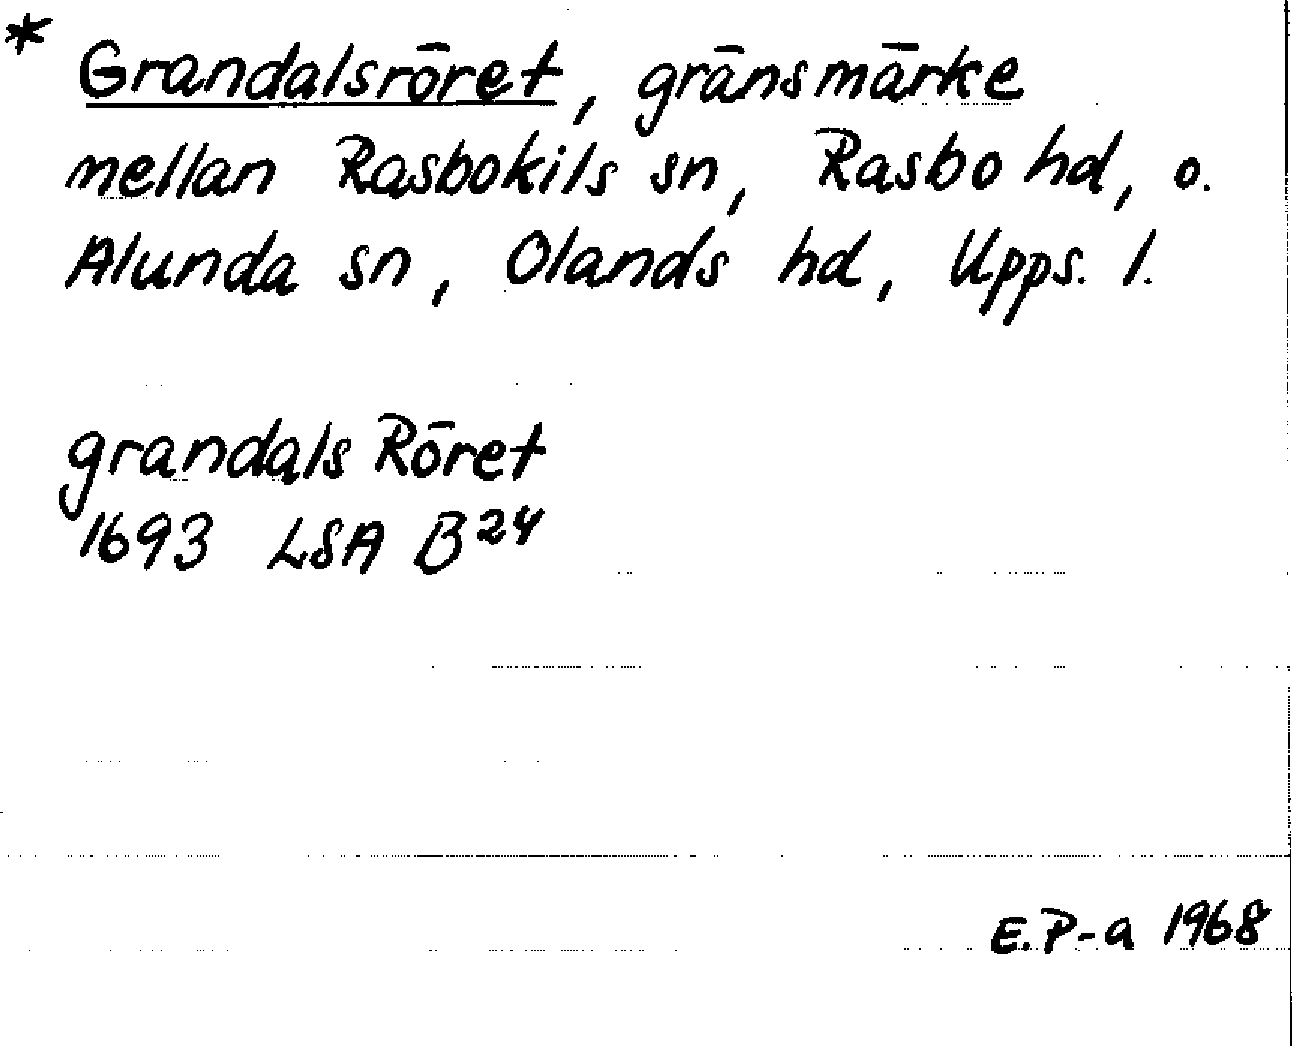 * Grandalsröret, gränsmärke
mellan Rasbokils sn, Rasbo hd, o.
Alunda sn, Olands hd, Upps. l.
grandals Röret
1693 LSA B²⁴
E.P-a 1968